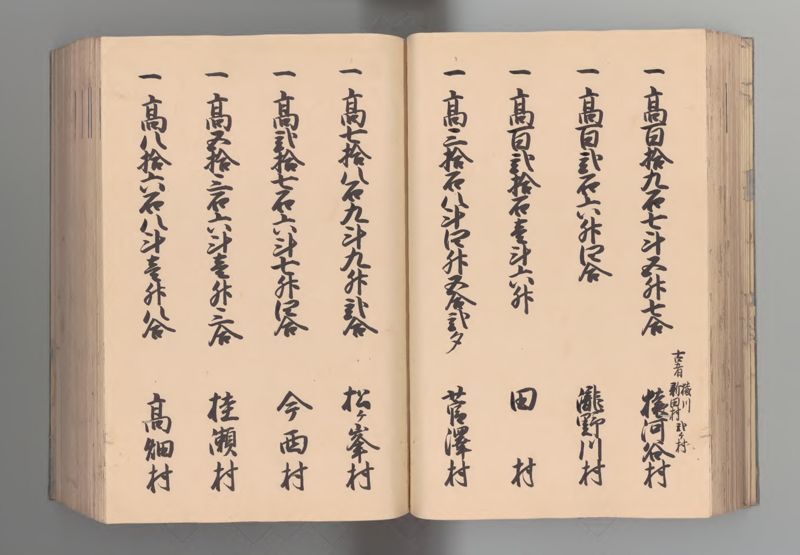 一 高百拾九石七斗五升七合
古者 猿川 新田村 弐ケ村
猿河谷村
一 高百弐石六升四合
瀧野川村
一 高百弐拾石壱斗六升
田村
一 高三拾石八斗四升五合弐夕
菅澤村
一 高七拾八石九斗九升弐合
松ケ峯村
一 高弐拾七石六斗七升四合
今西村
一 高五拾三石六斗壱升三合
桂瀬村
一 高八拾六石八斗壱升八合
高畑村